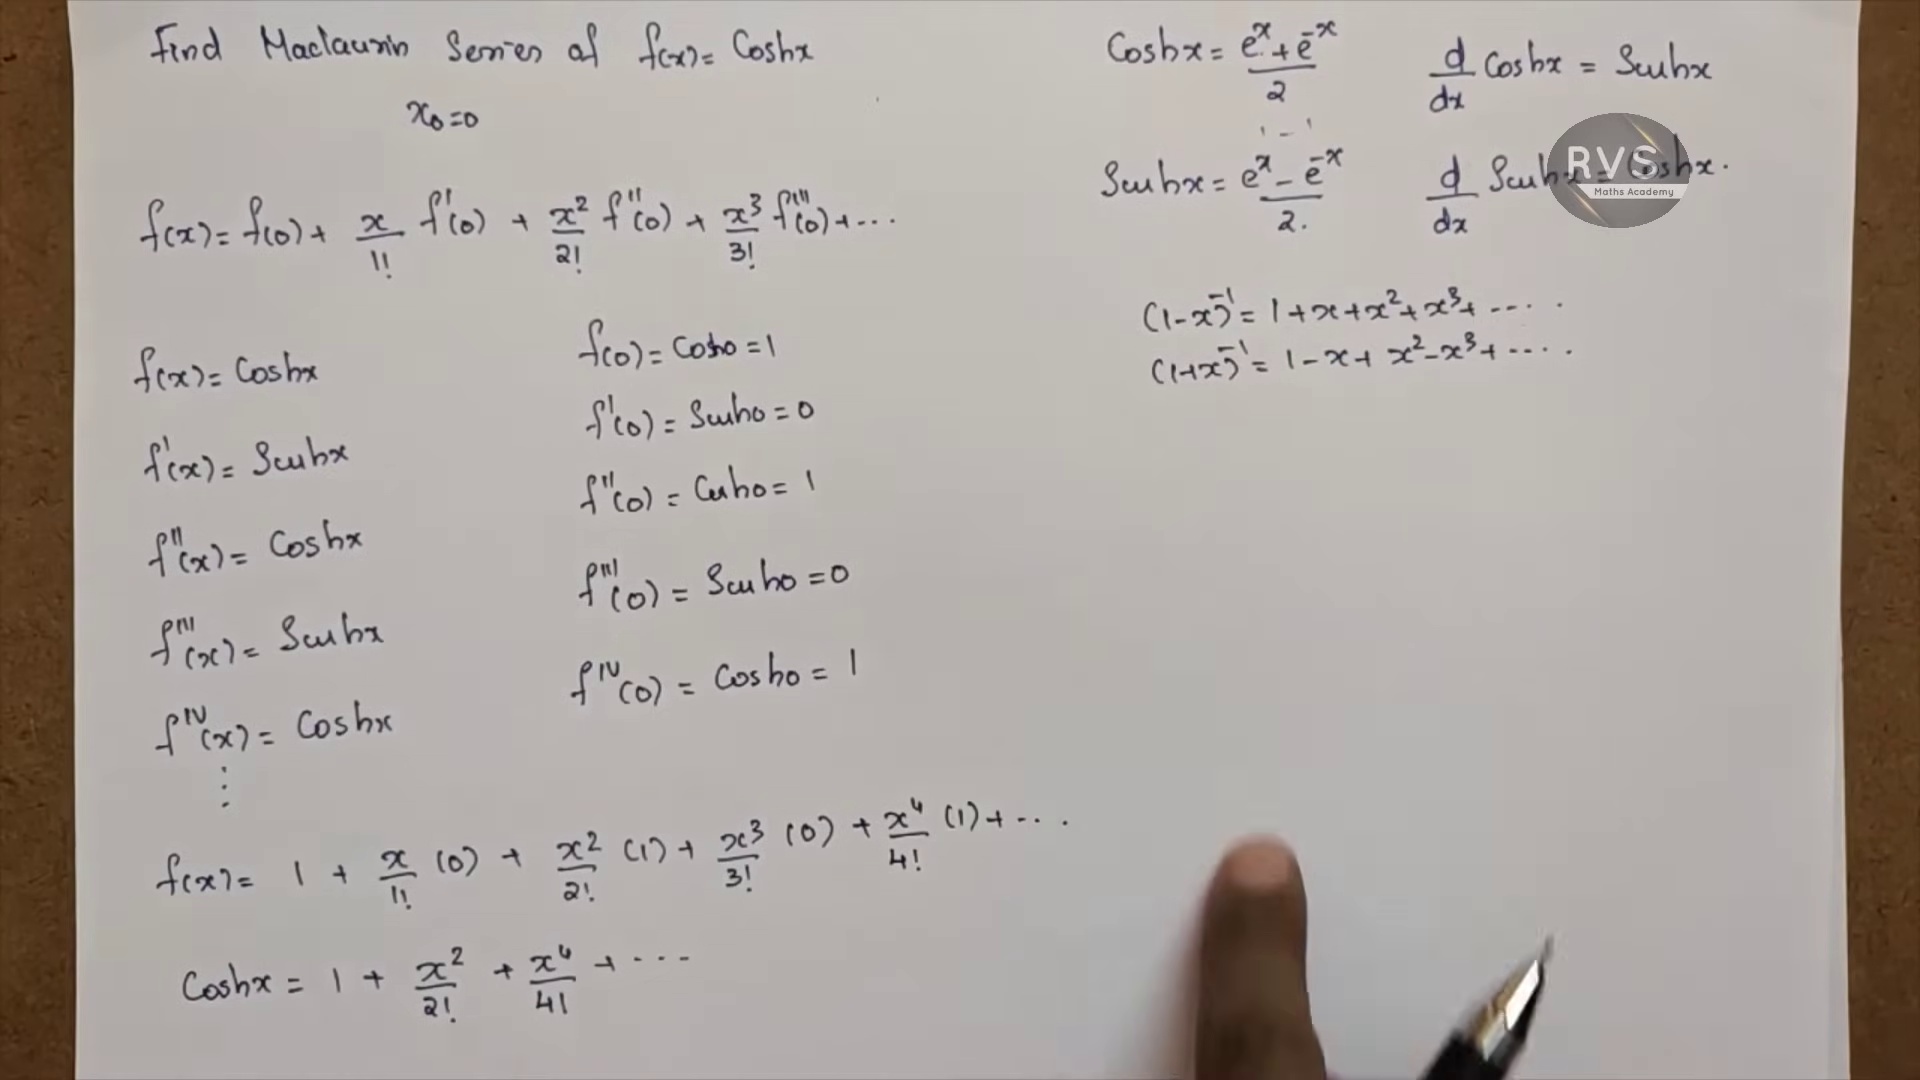 Find Maclaurin Series of f(x) = Coshx
x₀=0
f(x) = f(0) + x/1! f'(0) + x²/2! f''(0) + x³/3! f'''(0) + ...
f(x) = Coshx
f'(x) = Sinhx
f''(x) = Coshx
f'''(x) = Sinhx
f^IV(x) = Coshx
⋮
f(0) = Cosh0 = 1
f'(0) = Sinh0 = 0
f''(0) = Cosh0 = 1
f'''(0) = Sinh0 = 0
f^IV(0) = Cosh0 = 1
f(x) = 1 + x/1! (0) + x²/2! (1) + x³/3! (0) + x⁴/4! (1) + ...
Coshx = 1 + x²/2! + x⁴/4! + ...
Coshx = (e^x + e^-x)/2
d/dx Coshx = Sinhx
1 - 1
Sinhx = (e^x - e^-x)/2.
d/dx Sinhx = Coshx.
RVS
Maths Academy
(1-x)^-1 = 1 + x + x² + x³ + .....
(1+x)^-1 = 1 - x + x² - x³ + .....